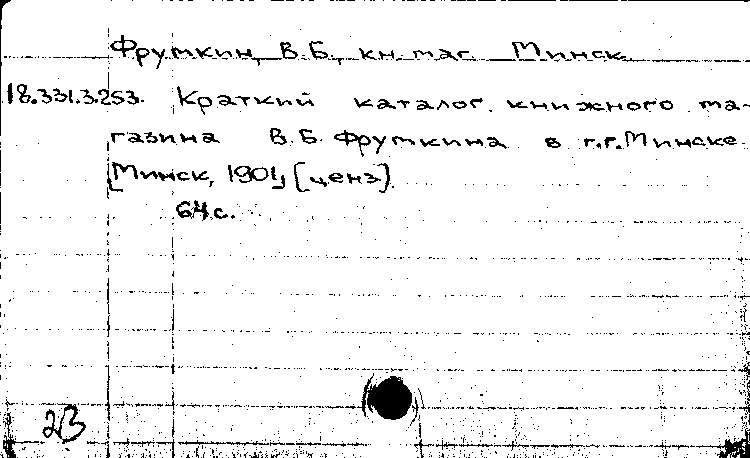 Фрумкин, В.Б., кн. маг. Минск.
18.331.3.253. Краткий каталог книжного ма-
газина В.Б. Фрумкина в г.г. Минске.
[Минск, 1901, [ценз].
64 с.